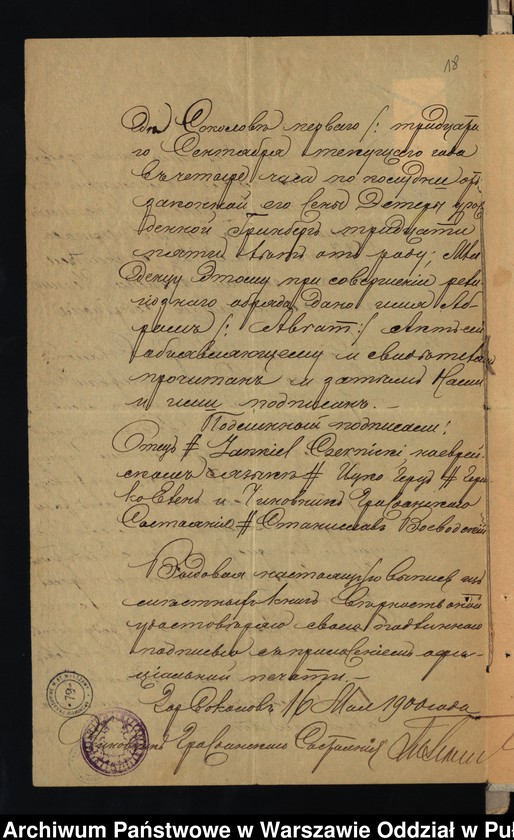 18
Соколовъ перваго /: тридцата
го Сентября текущаго года
въ четыре часа по полудни отъ
законной его жены Д уро
жденной Гринбергъ тридцати
пяти лѣтъ отъ роду; Мла
денцу этому при совершеніи рели
гіознаго обряда дано имя Аб
рамъ /: Абгат:/ Актъ сей
объявляющему и свидѣтелямъ
прочитанъ и затѣмъ Нами
и ими подписанъ. —
Подлинный подписали:
Отецъ # Czernicki по еврей
скомъ языкѣ # Ицко Герцъ #
и Чиновникъ Гражданскаго
Состоянія # Станиславъ Воеводскій
Выдовая настоящую выпись изъ
книгъ вѣрность оной
удостовѣряю своею подлинною
подписью съ приложеніемъ офи
ціальной печати. —
Гор Соколовъ 16 Мая 1900 года
Чиновникъ Гражданскаго Состоянія
Archiwum Państwowe w Warszawie Oddział w Puł